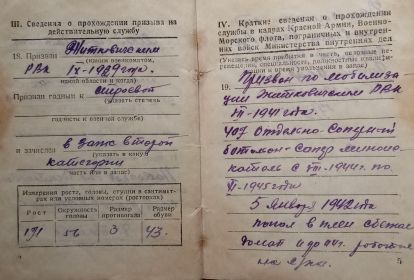 III. Сведения о прохождении призыва на
действительную службу
18. Призван Житковичским
(каким военкоматом,
РВК IX-1929 года.
какой области и когда)
Признан годным к строевой
(указать степень
годности к военной службе)
и зачислен в запас второй
(указать в какую
категории
часть или в запас)
Измерения роста, головы, ступни в сантимет-
рах или условных номерах (ростовках)
Рост
Окружность головы
Размер противогаза
Размер обуви
171 56 3 43.
IV. Краткие сведения о прохождении
службы в кадрах Красной Армии, Военно-
Морского флота, пограничных и внутрен-
них войск Министерства внутренних дел
(Указать время прибытия в часть, основные
и время увольнения в запас)
19. Призван по мобилиза
ции Житковичским РВК
1941 года.
407 Отдельно-Саперный
батальон-Сапер
с VIII-1944г. по
VI-1945 года
5 Января 1942 года
попал в плен сбежал
домой и до 44г. работал
5